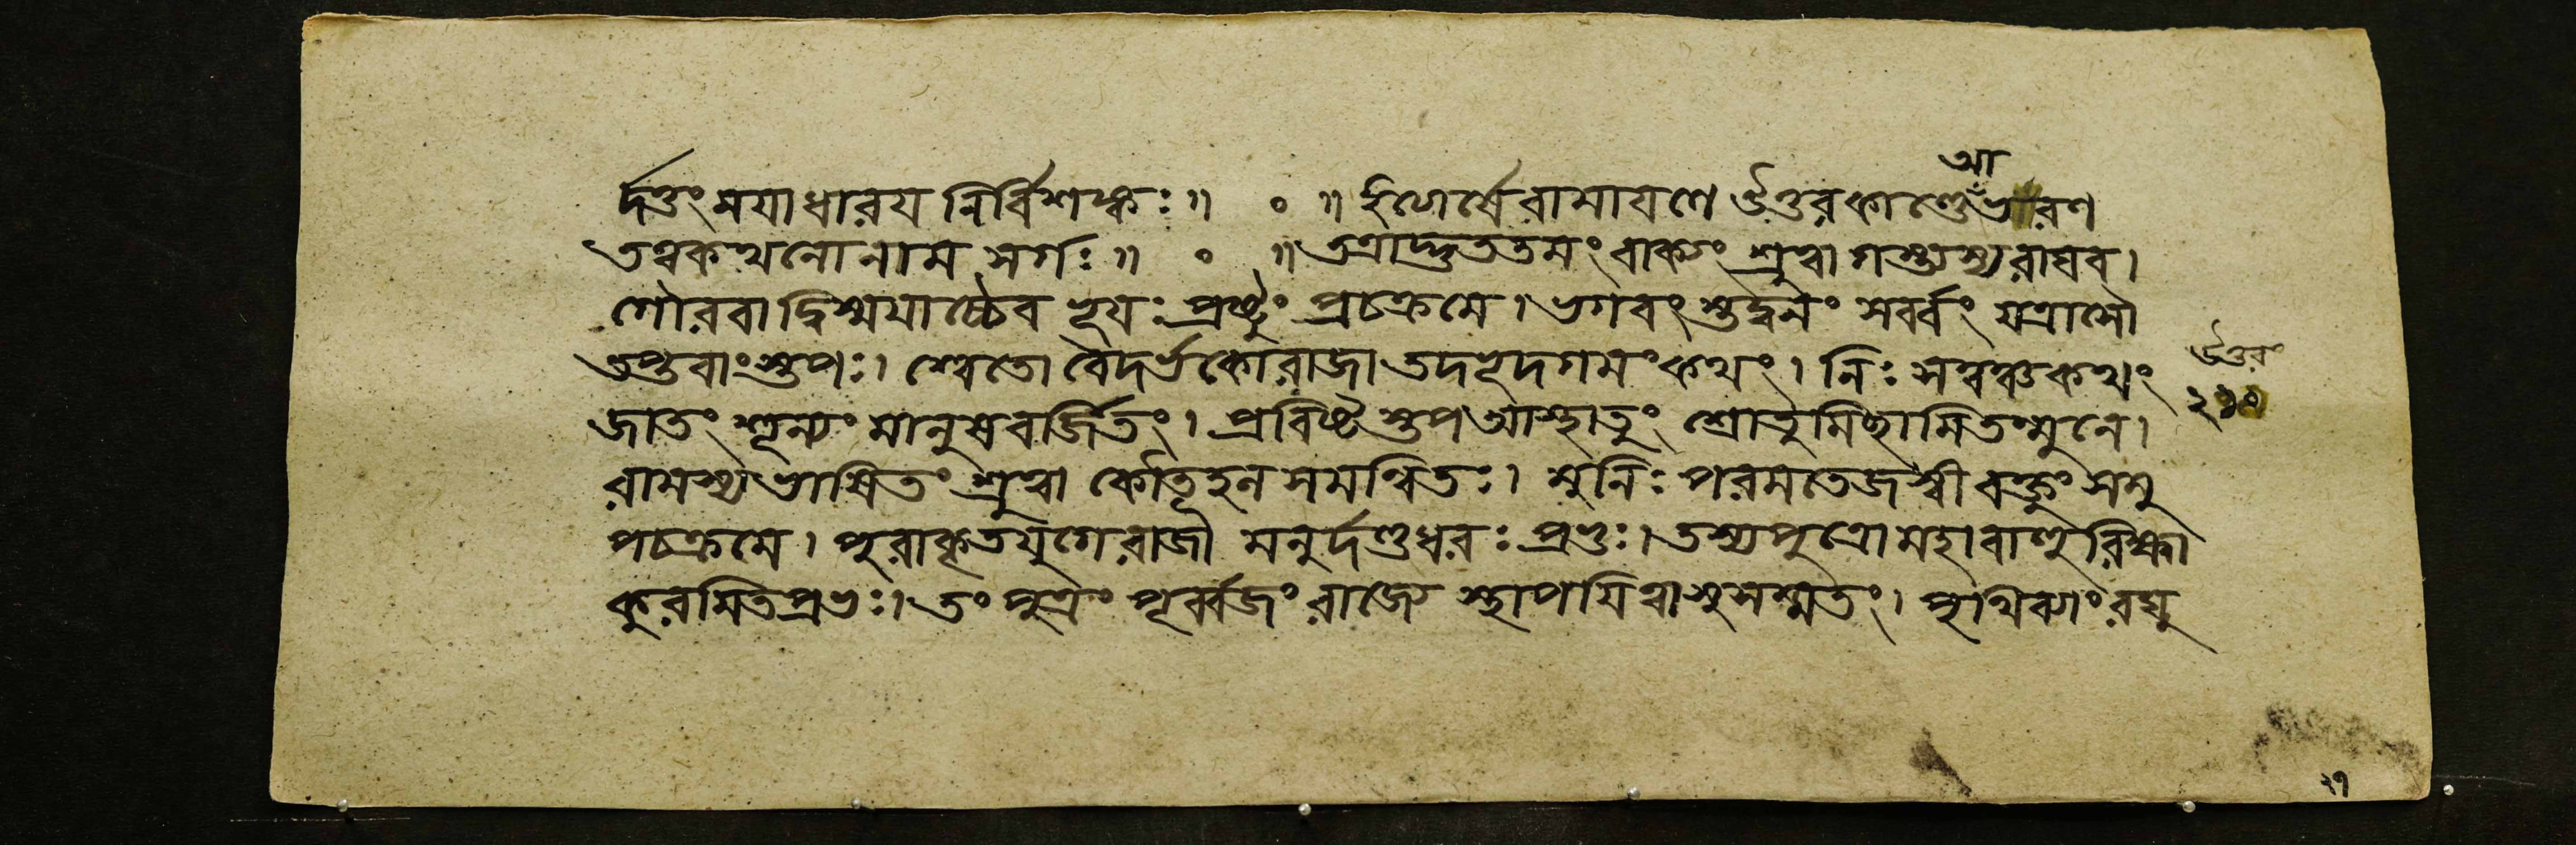 আ
র্দত্তং ময়াধারয নির্বিশঙ্কঃ॥ ॰ ॥ ইত্যার্ষে রামাযণে উত্তরকাণ্ডে ভরণ
তন্বকথনো নাম সর্গঃ॥ ॰ ॥ তত্রাদ্ভুততমং বাক্যং শ্রুত্বাগস্ত্যস্য রাঘব।
গৌরবাদ্বিস্ময়াচ্চৈব ভূযঃ প্রষ্টুং প্রচক্রমে। ভগবংস্তদ্বনং সর্ব্বং যত্রাসৌ
তপ্তবাংস্তপঃ। শ্বেতো বৈদর্ভকো রাজা তদভূদগমং কথং। নিঃসত্বঞ্চ কথং
জাতং শূন্যং মানুষবর্জিতং। প্রবিষ্টস্তপ আস্থাতুং শ্রোতুমিচ্ছামিতন্মুনে।
রামস্য ভাষিতং শ্রুত্বা কৌতূহল সমন্বিতঃ। মুনিঃ পরমতেজস্বী বক্তুং সমু
পচক্রমে। পুরাকৃতযুগে রাজা মনুর্দণ্ডধরঃ প্রভুঃ। তস্য পুত্রো মহাবাহুরিক্ষা
কুরমিতপ্রভঃ। তং পুত্রং পূর্ব্বজং রাজ্যে স্থাপযিত্বা সুসম্মতং। পৃথিব্যাং রঘু
উত্তর
২৭